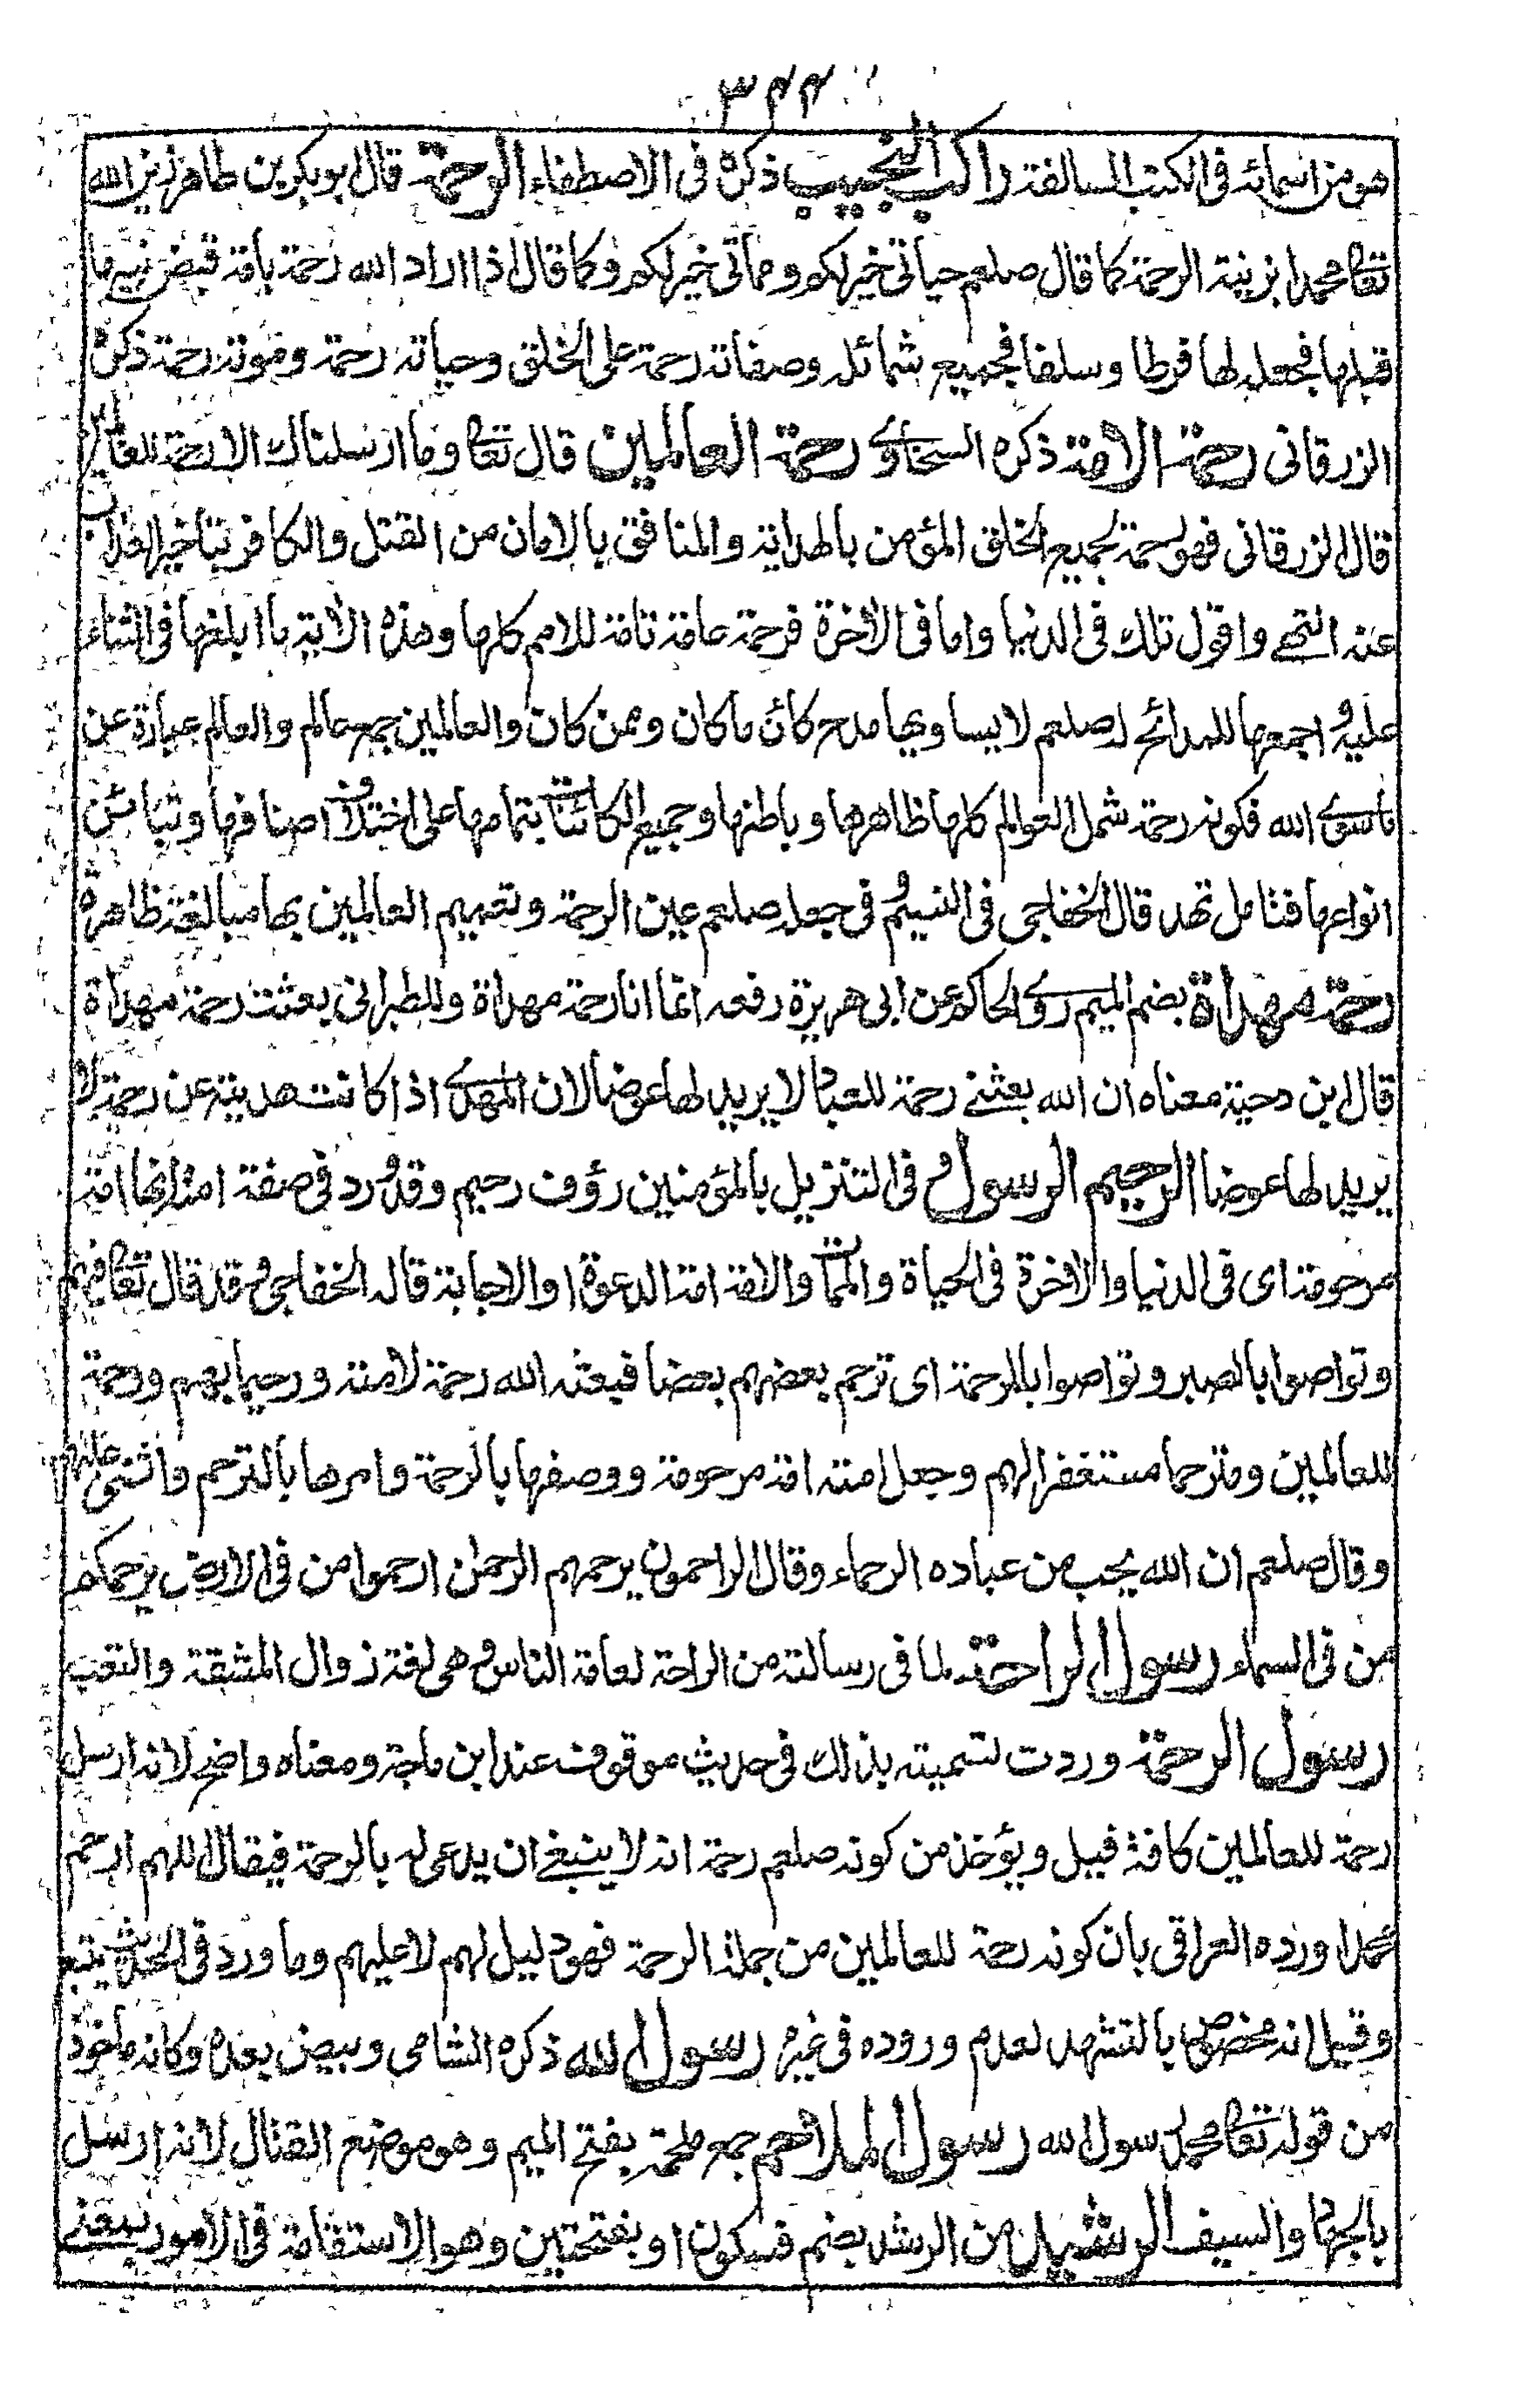 ٣٤٤
هو من اسمائه فى الكتب السالفة راكب النجيب ذكره فى الاصطفاء الرحمة قال ابو بكر بن طاهر زين الله
تعا محمدا بزينة الرحمة كما قال صلعم حياتى خير لكم ومماتى خير لكم وكما قال اذا اراد الله رحمة بامة قبض نبيها
قبلها فجعله لها فرطا وسلفا فجميع شمائله وصفاته رحمة على الخلق وحياته رحمة وموته رحمة ذكره
الزرقانى رحمة الامة ذكره السخاوى رحمة العالمين قال تعا وما ارسلناك الا رحمة للعالمين
قال الزرقانى فهو رحمة لجميع الخلق المؤمن بالهداية والمنافق بالامان من القتل والكافر بتاخير العذاب
عنه انتهى واقول تلك فى الدنيا واما فى الاخرة فرحمة عامة تامة للامم كلها وهذه الاية ما ابلغها فى الثناء
عليه واجمعها للمدائح له صلعم لا يساويها مدح كائن ما كان ومن كان والعالمين جمع عالم والعالم عبارة عن
ماسوى الله فكونه رحمة شمل العوالم كلها ظاهرها وباطنها وجميع الكائنات بتمامها على اختلاف اصنافها وتبائن
انواعها فتامل تهد قال الخفاجى فى النسيم وفى جعله صلعم عين الرحمة وتعميم العالمين بها مبالغة ظاهرة
رحمة مهداة بضم الميم روى الحاكم عن ابى هريرة رفعه انما انا رحمة مهداة وللطبرانى بعثت رحمة مهداة
قال ابن دحية معناه ان الله بعثنى رحمة للعباد لا يريد لها عوضا لان المهدى اذا كانت هديته عن رحمة لا
يريد لها عوضا الرحيم الرسول فى التنزيل بالمؤمنين رؤف رحيم وقد ورد فى صفة امته انها امة
مرحومة اى فى الدنيا والاخرة فى الحياة والممات والامة امة الدعوة او الاجابة قاله الخفاجى وقد قال تعا فيهم
وتواصوا بالصبر وتواصوا بالمرحمة اى ترحم بعضهم بعضا فبعثه الله رحمة لامته ورحيما بهم ورحمة
للعالمين ومترحما مستغفرا لهم وجعل امته امة مرحومة ووصفها بالرحمة وامرها بالترحم واثنى عليهم
وقال صلعم ان الله يحب من عباده الرحماء وقال الراحمون يرحمهم الرحمن ارحموا من فى الارض يرحمكم
من فى السماء رسول الراحة لما فى رسالته من الراحة لعامة الناس وهى لغة زوال المشقة والتعب
رسول الرحمة وردت تسميته بذلك فى حديث موقوف عند ابن ماجة ومعناه واضح لانه ارسل
رحمة للعالمين كافة قيل ويؤخذ من كونه صلعم رحمة انه لا ينبغى ان يدعى له بالرحمة فيقال اللهم ارحم
محمدا ورده العراقى بان كونه رحمة للعالمين من جملة الرحمة فهو دليل لهم لا عليهم وما ورد فى الحديث يتبع
وقيل انه مخصوص بالتشهد لعدم وروده فى غيره رسول الله ذكره الشامى وبيض بعده وكانه ماخوذ
من قوله تعا محمد رسول الله رسول الملاحم جمع ملحمة بفتح الميم وهو موضع القتال لانه ارسل
بالجهاد والسيف الرشيد من الرشد بضم فسكون او بفتحتين وهو الاستقامة فى الامور بمعنى